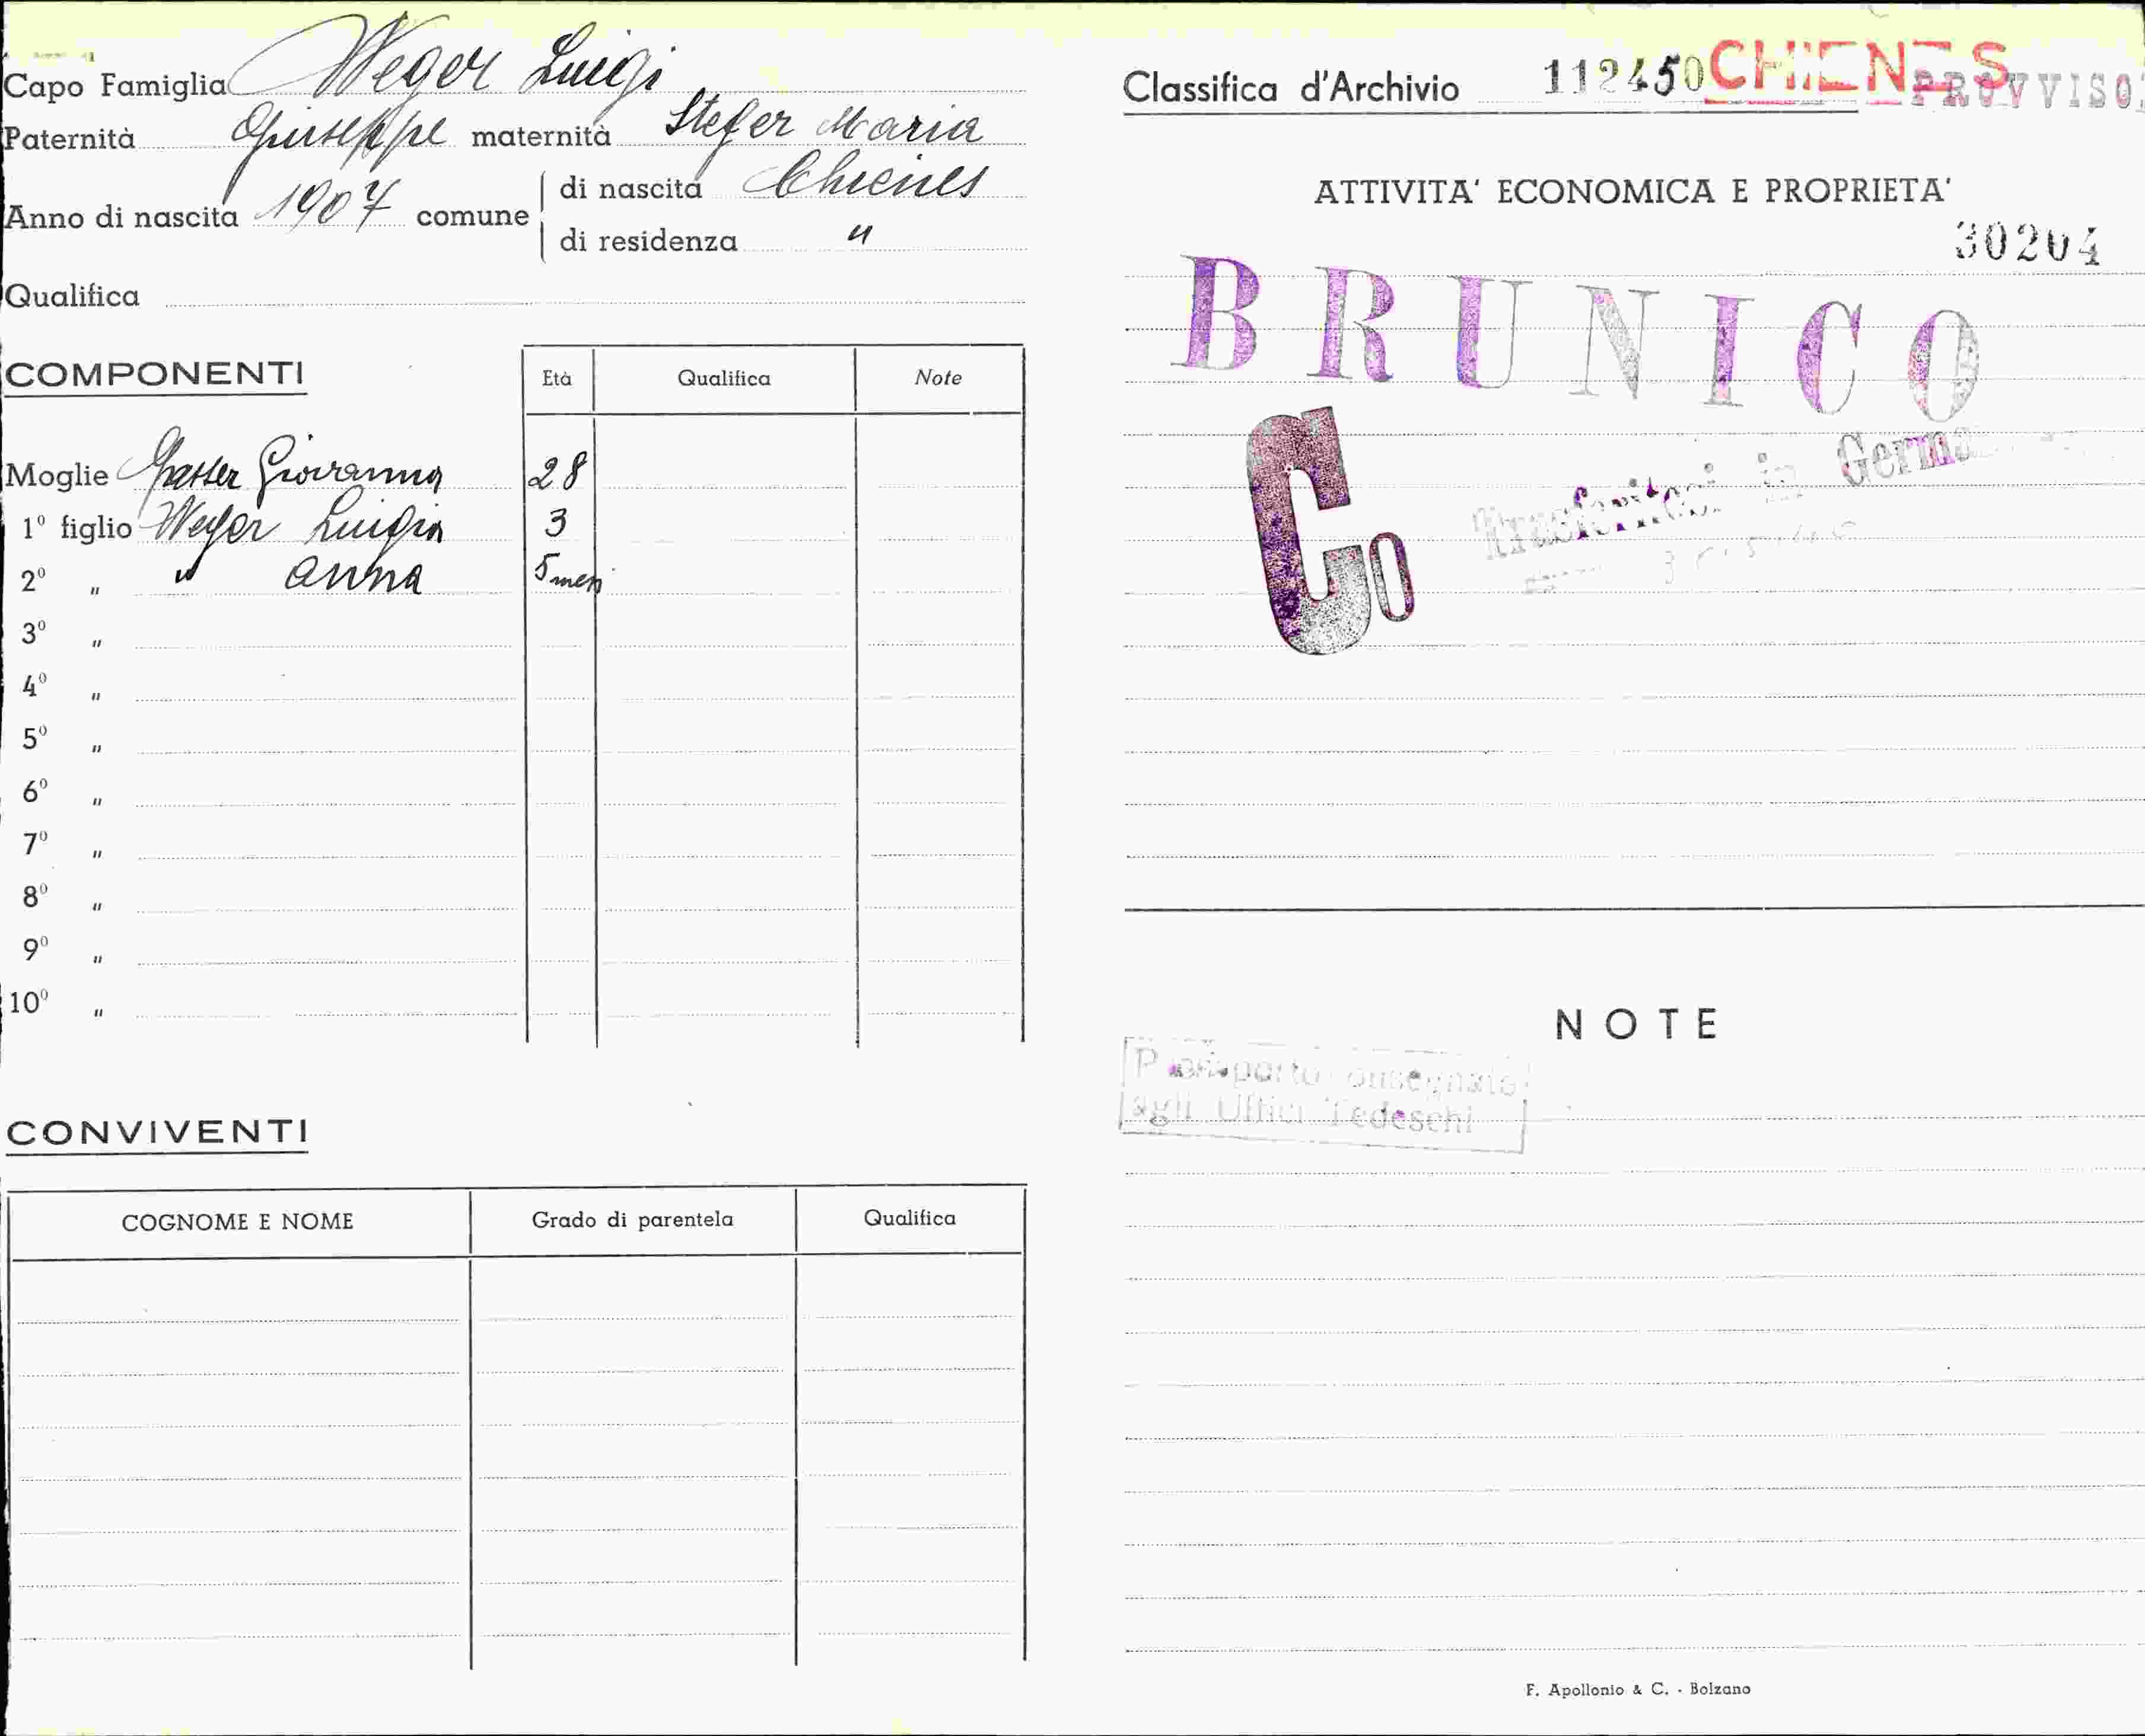 Capo Famiglia Weger Luigi
Paternità Giuseppe maternità Stefer Maria
Anno di nascita 1907 comune di nascita Chienes
di residenza "
Qualifica
COMPONENTI
Età Qualifica Note
Moglie Gasser Giovanna 28
1º figlio Weger Luigia 3
2º " " Anna 5 mesi
3º "
4º "
5º "
6º "
7º "
8º "
9º "
10º "
CONVIVENTI
COGNOME E NOME Grado di parentela Qualifica
Classifica d'Archivio 112450 CHIENES PROVVISO
ATTIVITA' ECONOMICA E PROPRIETA'
30204
BRUNICO
Co
Trasferitosi in Germa
NOTE
Passaporto consegnato
agli Uffici Tedeschi
F. Apollonio & C. - Bolzano